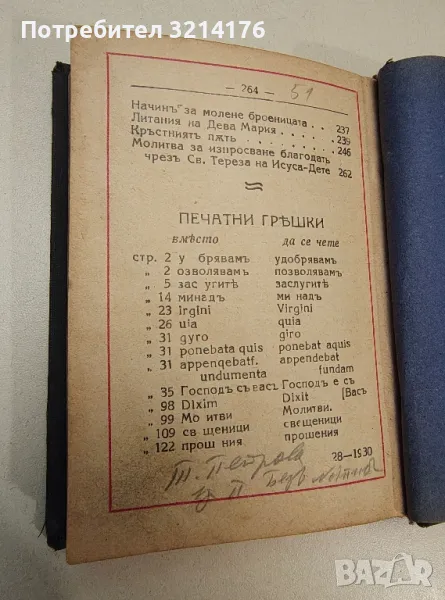 Потребител 3214176
— 264 — 51
Начинъ за молене броеницата . . 237
Литания на Дева Мария . . . . 239
Кръстниятъ пѫть . . . . . . 246
Молитва за изпросване благодать
чрезъ Св. Тереза на Исуса-Дете 262
ПЕЧАТНИ ГРѢШКИ
вмѣсто да се чете
стр. 2 у брявамъ удобрявамъ
„ 2 озволявамъ позволявамъ
„ 5 зас угитѣ заслугитѣ
„ 14 минедъ ми надъ
„ 23 irgini Virgini
„ 26 uia quia
„ 31 gyro giro
„ 31 ponebata quis ponebat aquis
„ 31 appenqebatf. appendebat
undumenta fundam
„ 35 Господъ съвасъ Господъ е съ
„ 98 Dlxim Dixit [Васъ
„ 99 Мо итви Молитви.
„ 109 св щеници свещеници
„ 122 прош ния прошения
28—1930
Т. Петрова
II
BAZAR
bg